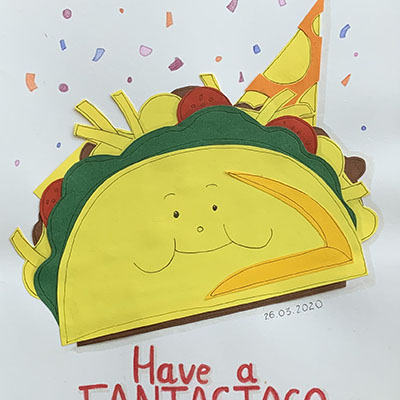 26.03.2020
Have a
FANTASTACO